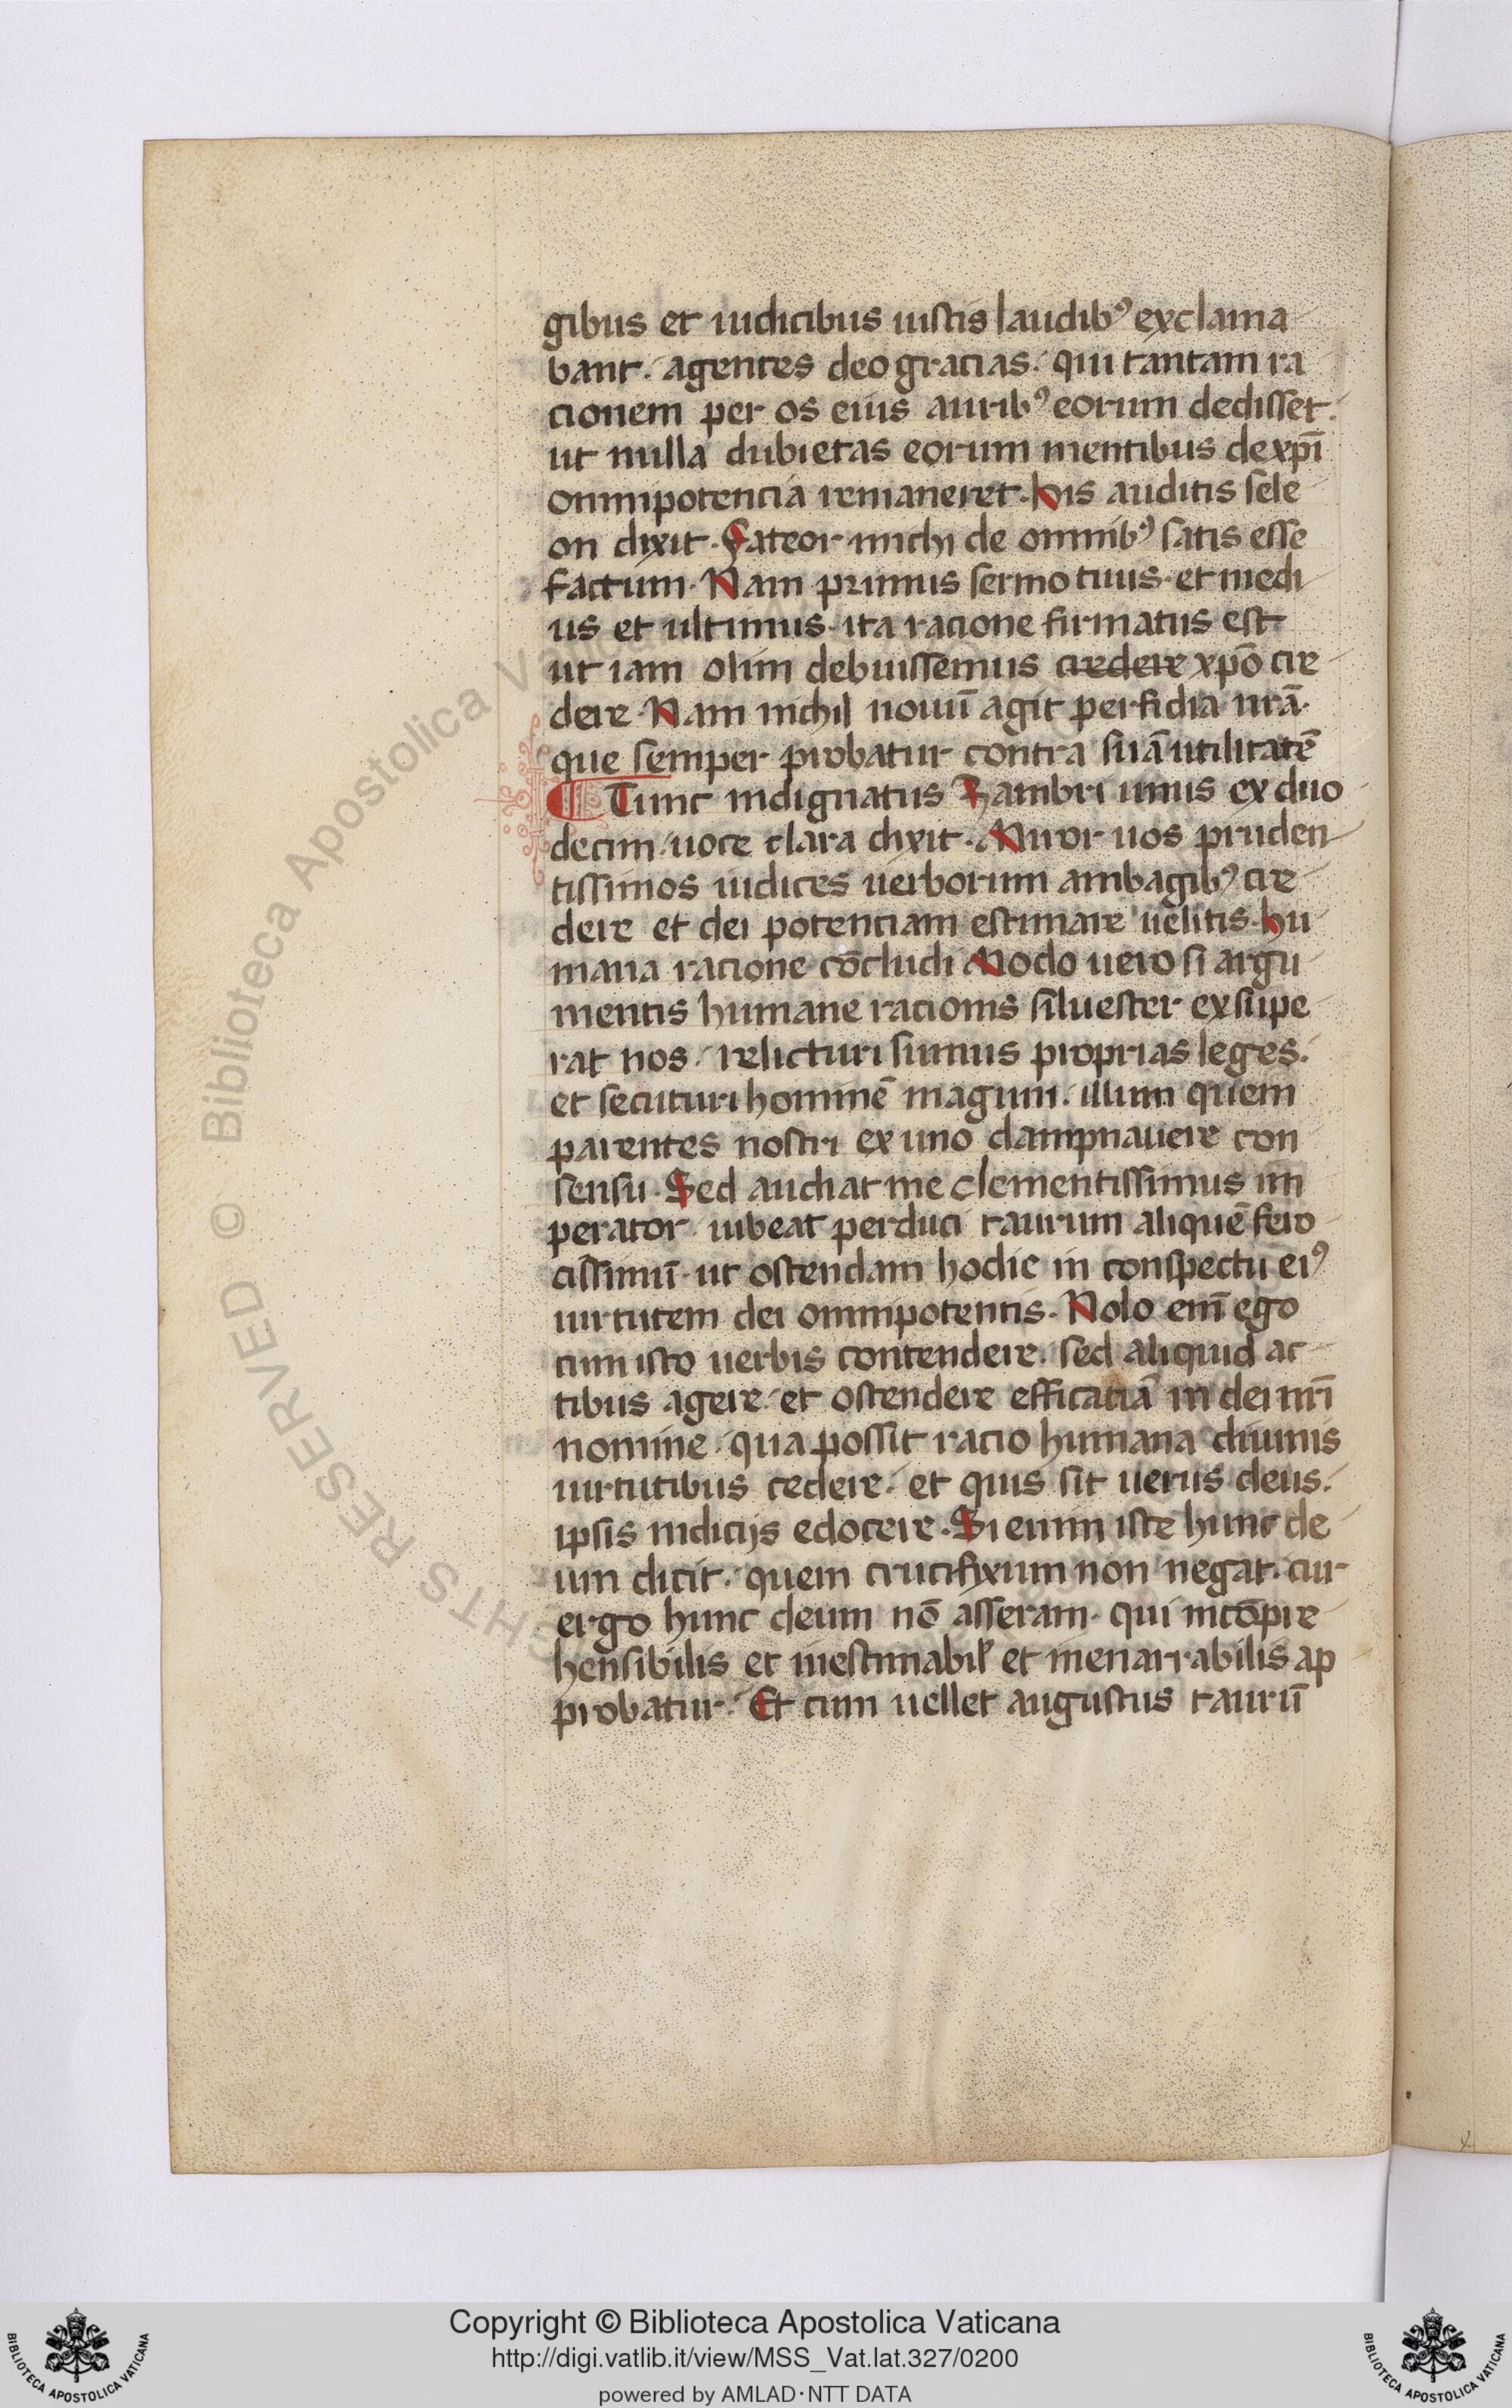 gibus et iudicibus iustis laudibꝰ exclama
bant. agentes deo gracias. qui tantam ra
cionem per os eius auribꝰ eorum dedisset.
ut nulla dubietas eorum mentibus de xp̄i
omnipotencia remaneret. His auditis sele
on dixit. Fateor michi de omnibꝰ satis esse
factum. Nam primus sermo tuus. et medi
us et ultimus. ita racione firmatus est
ut iam olim debuissemus credere xp̄o cre
dere. Nam nichil nouū agit perfidia nr̄a.
que semper probatur contra suā utilitatē
¶ Tunc indignatus Zambri unus ex duo
decim. uoce clara dixit. Miror uos pruden
tissimos iudices uerborum ambagibꝰ cre
dere et dei potentiam estimare uelitis. hu
mana racione cōcludi Modo uero si argu
mentis humane racionis siluester exsupe
rat nos. relicturi sumus proprias leges.
et secuturi hominē magum. illum quem
parentes nostri ex uno dampnauere con
sensu. Sed audiat me clementissimus im
perator. iubeat perduci taurum aliquē fero
cissimū. ut ostendam hodie in conspectu eiꝰ
uirtutem dei omnipotentis. Nolo enī ego
cum isto uerbis contendere. sed aliquid ac
tibus agere. et ostendere efficatiā in dei nr̄i
nomine. qua possit racio humana diuinis
uirtutibus cedere. et quis sit uerus deus.
ipsis indicijs edocere. Si enim iste hunc de
um dicit. quem crucifixum non negat. cur
ergo hunc deum nō asseram. qui incōpre
hensibilis et inestimabil' et inenarrabilis ap
probatur. Et cum uellet augustus taurū
© Biblioteca Apostolica Vaticana
RESERVED
Copyright © Biblioteca Apostolica Vaticana
http://digi.vatlib.it/view/MSS_Vat.lat.327/0200
powered by AMLAD·NTT DATA
BIBLIOTECA APOSTOLICA VATICANA
BIBLIOTECA APOSTOLICA VATICANA